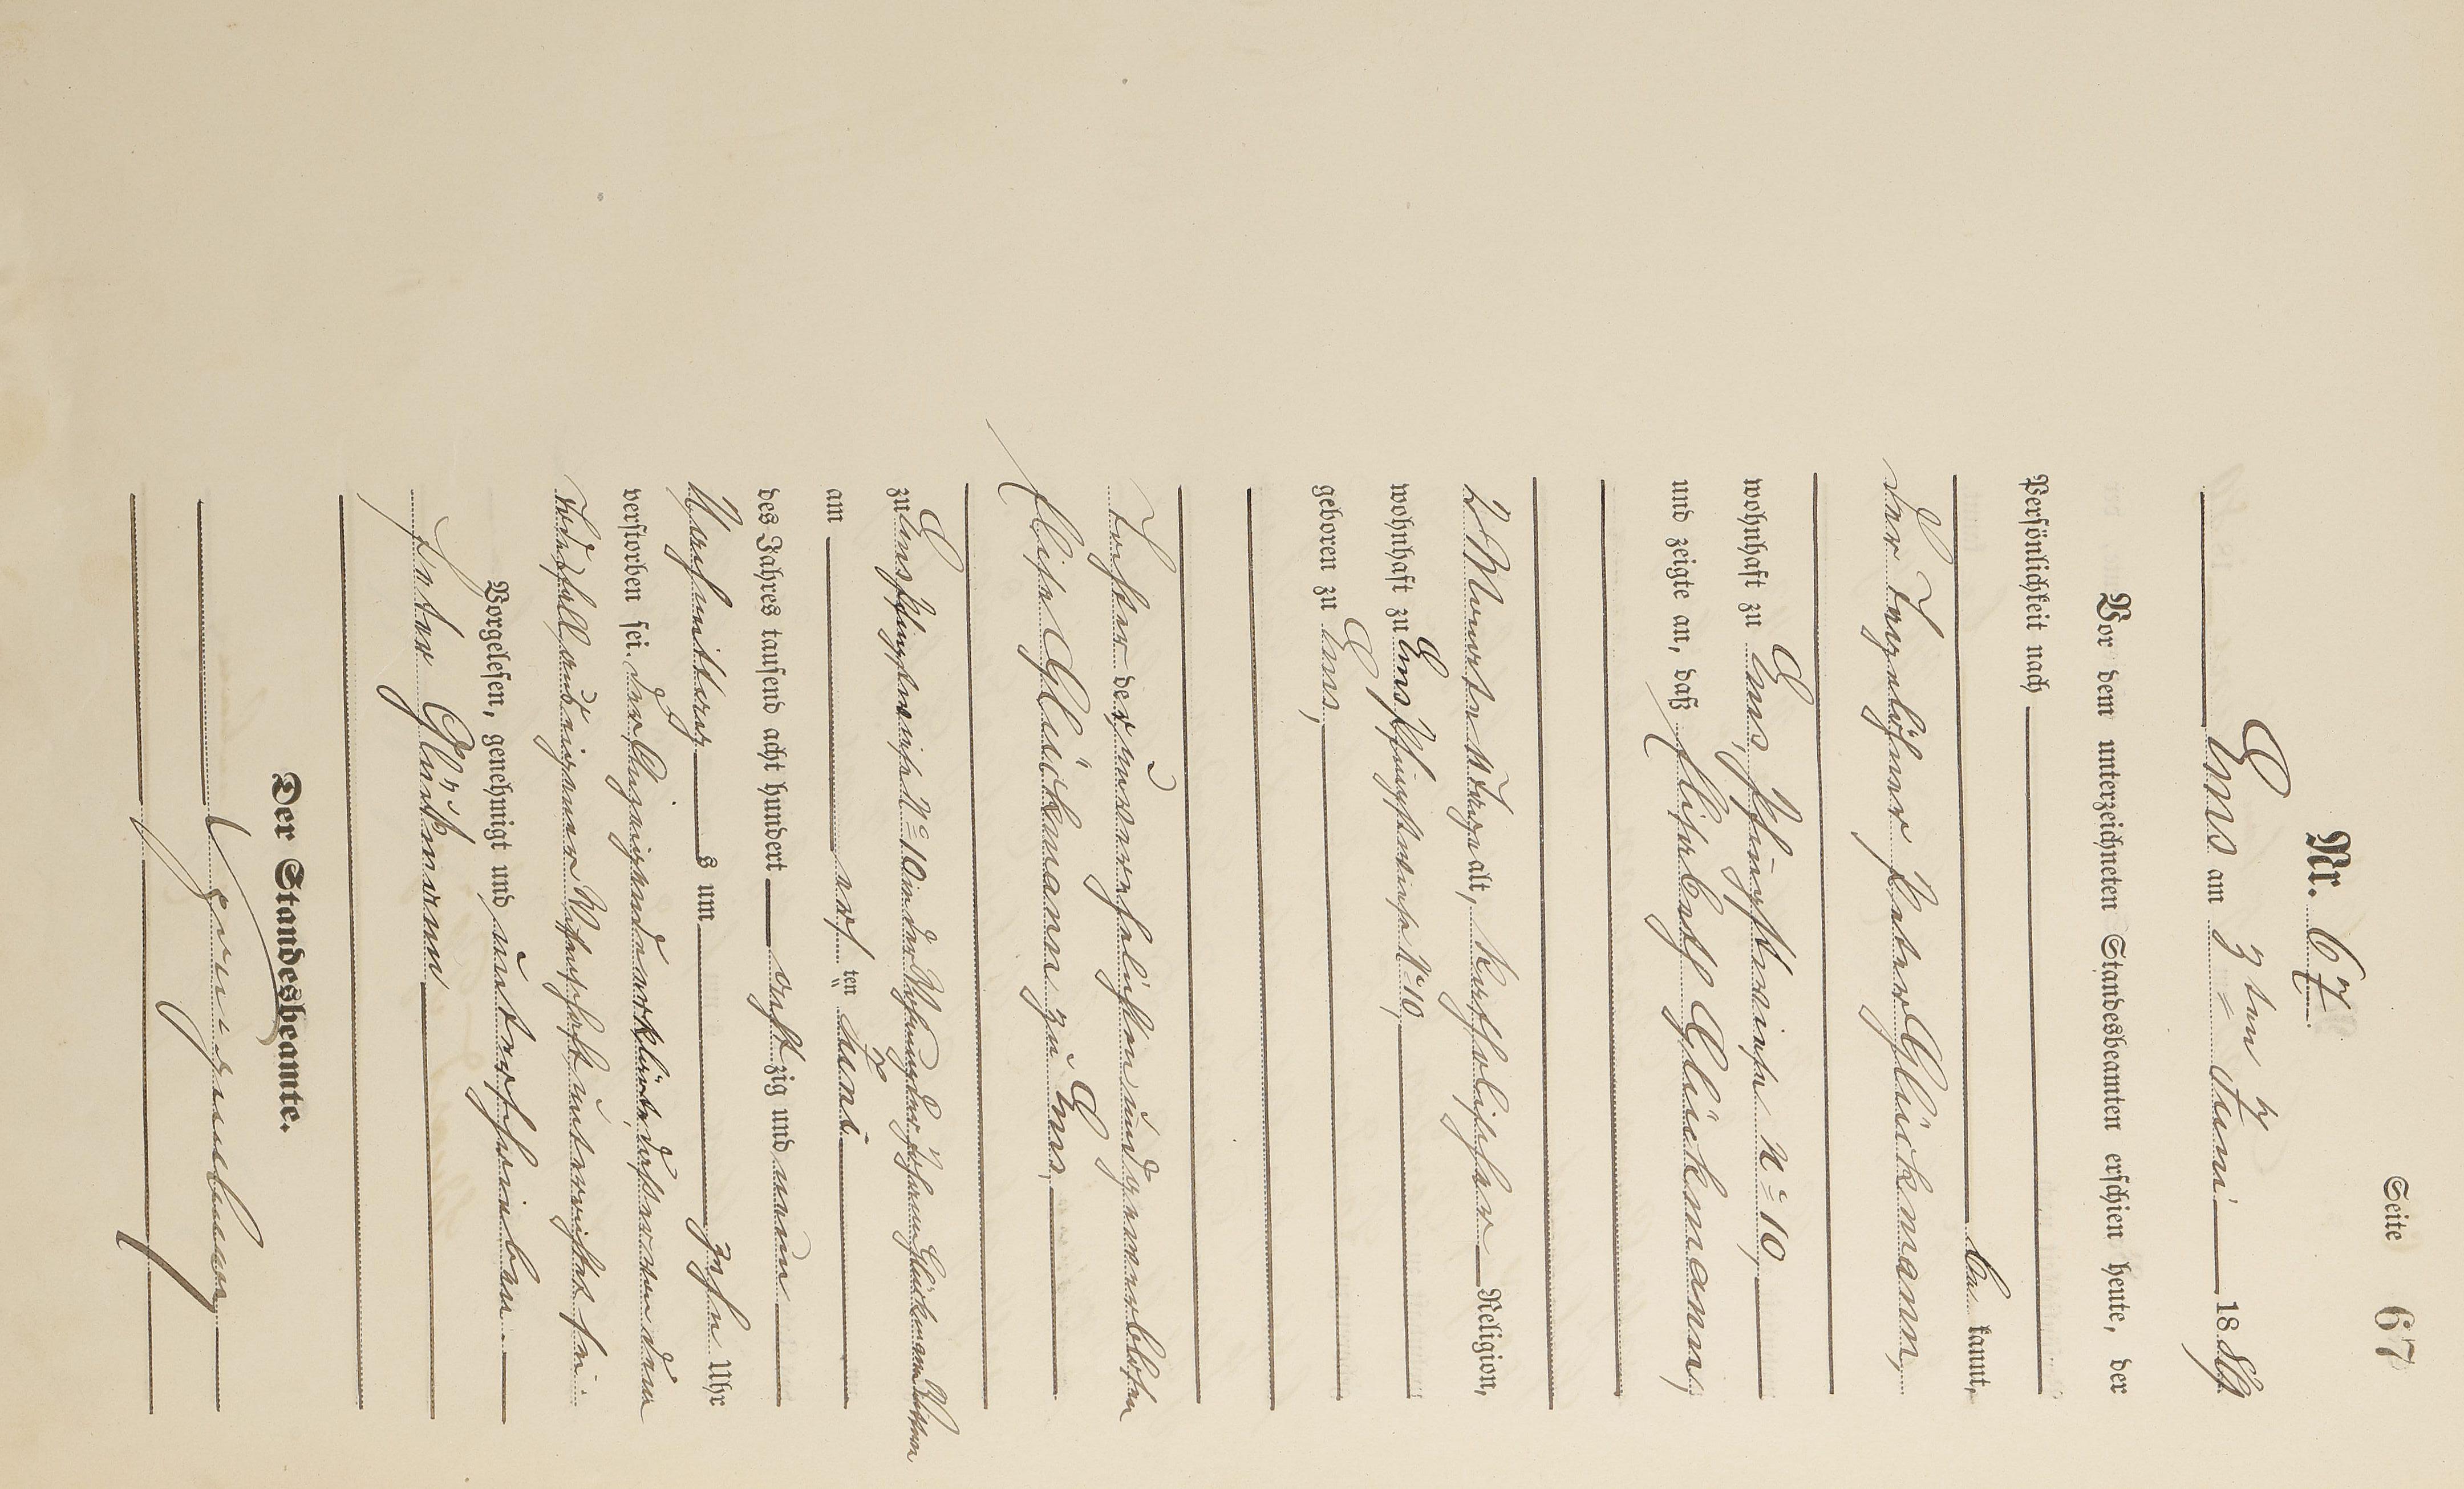 Seite 67
Nr. 67.
Ems am 3ten Juni 1889
Vor dem unterzeichneten Standesbeamten erschien heute, der
Persönlichkeit nach
be kannt,
der Tagelöhner Peter Glückmann,
wohnhaft zu Ems, Pfingstwiese No 10,
und zeigte an, daß Elisabeth Glückmann,
2 Monate Tage alt, katholischer Religion,
wohnhaft zu Ems Pfingstwiese No 10,
geboren zu Ems,
Tochter der unverehelichten und gewerblosen
Elise Glückmann zu Ems,
zu Ems Pfingstwiese No 10 in der Wohnung der Johann Glückmann
am ersten Juni
des Jahres tausend acht hundert achtzig und neun
Vormittags um zehn Uhr
verstorben sei. Der Anzeigende erklärte, daß er von dem
Todesfall aus eigener Wissenschaft unterrichtet sei.
Vorgelesen, genehmigt und unterschrieben.
Peter Glückmann
Der Standesbeamte.